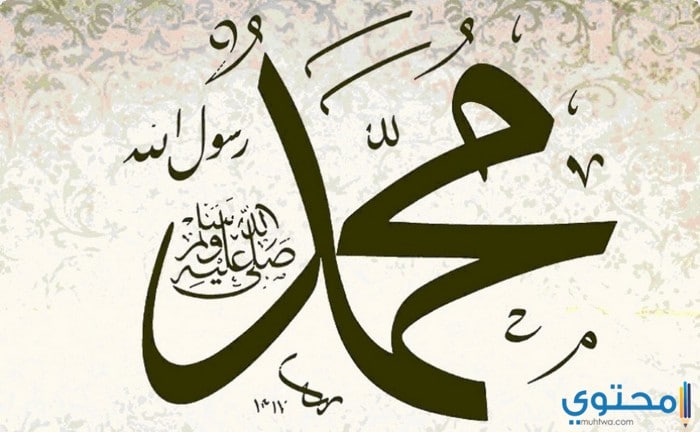 مُحَمَّدٌ
رسول الله
صلى الله عليه وسلم
محتوى
muhtwa.com